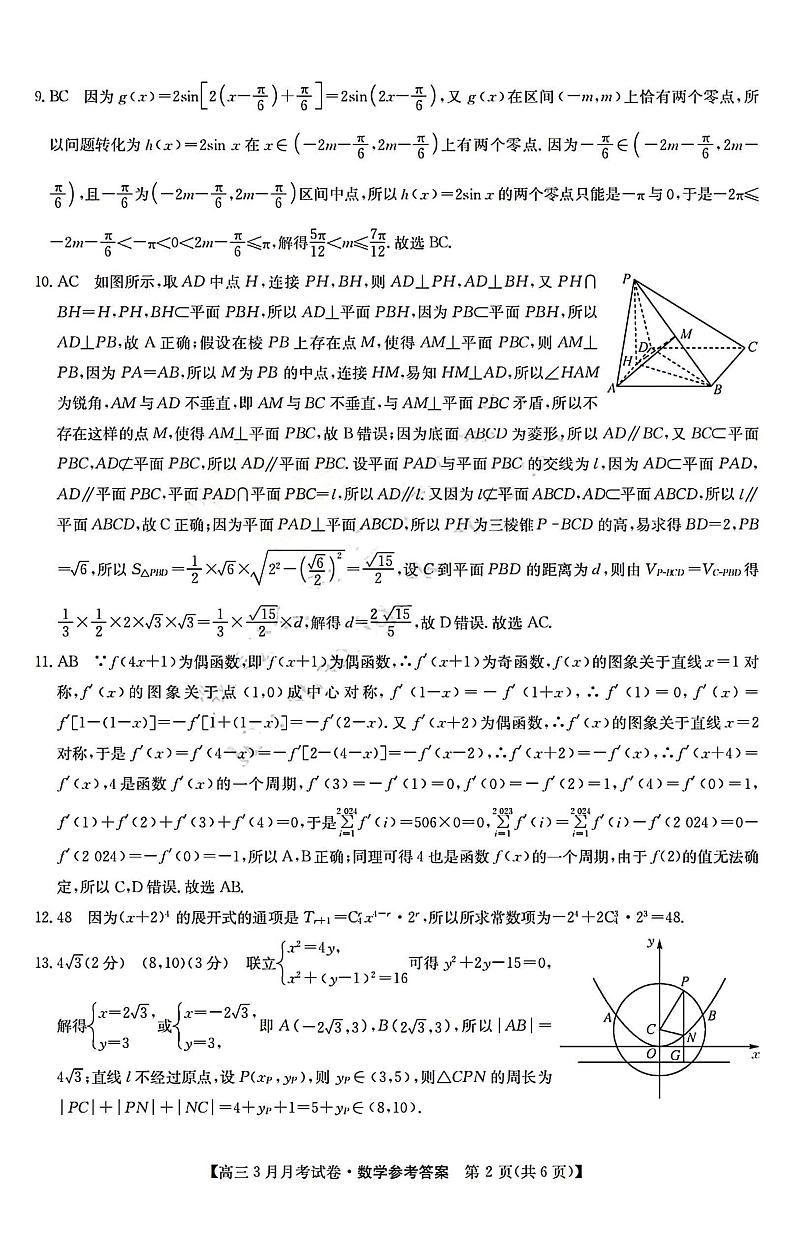 9. BC　因为 g(x)=2sin[2(x-π/6)+π/6]=2sin(2x-π/6),又 g(x)在区间(-m,m)上恰有两个零点,所
以问题转化为 h(x)=2sin x 在 x∈(-2m-π/6,2m-π/6)上有两个零点. 因为-π/6∈(-2m-π/6,2m-
π/6),且-π/6为(-2m-π/6,2m-π/6)区间中点,所以 h(x)=2sin x 的两个零点只能是-π与0,于是-2π≤
-2m-π/6<-π<0<2m-π/6≤π,解得5π/12<m≤7π/12. 故选 BC.
10. AC　如图所示,取 AD 中点 H,连接 PH,BH,则 AD⊥PH,AD⊥BH,又 PH∩
BH=H,PH,BH⊂平面 PBH,所以 AD⊥平面 PBH,因为 PB⊂平面 PBH,所以
AD⊥PB,故 A 正确;假设在棱 PB 上存在点 M,使得 AM⊥平面 PBC,则 AM⊥
PB,因为 PA=AB,所以 M 为 PB 的中点,连接 HM,易知 HM⊥AD,所以∠HAM
为锐角,AM 与 AD 不垂直,即 AM 与 BC 不垂直,与 AM⊥平面 PBC 矛盾,所以不
P
M
D
C
H
A
B
存在这样的点 M,使得 AM⊥平面 PBC,故 B 错误;因为底面 ABCD 为菱形,所以 AD∥BC,又 BC⊂平面
PBC,AD⊄平面 PBC,所以 AD∥平面 PBC. 设平面 PAD 与平面 PBC 的交线为 l,因为 AD⊂平面 PAD,
AD∥平面 PBC,平面 PAD∩平面 PBC=l,所以 AD∥l. 又因为 l⊄平面 ABCD,AD⊂平面 ABCD,所以 l∥
平面 ABCD,故 C 正确;因为平面 PAD⊥平面 ABCD,所以 PH 为三棱锥 P-BCD 的高,易求得 BD=2,PB
=√6,所以 S△PBD=1/2×√6×√(2²-(√6/2)²)=√15/2,设 C 到平面 PBD 的距离为 d,则由 V_{P-BCD}=V_{C-PBD}得
1/3×1/2×2×√3×√3=1/3×√15/2×d,解得 d=2√15/5,故 D 错误. 故选 AC.
11. AB　∵f(4x+1)为偶函数,即 f(x+1)为偶函数,∴f′(x+1)为奇函数,f(x)的图象关于直线 x=1 对
称,f′(x)的图象关于点(1,0)成中心对称, f′(1-x)=-f′(1+x),∴f′(1)=0,f′(x)=
f′[1-(1-x)]=-f′[1+(1-x)]=-f′(2-x). 又 f′(x+2)为偶函数,∴f′(x)的图象关于直线 x=2
对称,于是 f′(x)=f′(4-x)=-f′[2-(4-x)]=-f′(x-2),∴f′(x+2)=-f′(x),∴f′(x+4)=
f′(x),4 是函数 f′(x)的一个周期,f′(3)=-f′(1)=0,f′(0)=-f′(2)=1,f′(4)=f′(0)=1,
f′(1)+f′(2)+f′(3)+f′(4)=0,于是∑_{i=1}^{2 024} f′(i)=506×0=0,∑_{i=1}^{2 023} f′(i)=∑_{i=1}^{2 024} f′(i)-f′(2 024)=0-
f′(2 024)=-f′(0)=-1,所以 A,B 正确;同理可得 4 也是函数 f(x)的一个周期,由于 f(2)的值无法确
定,所以 C,D 错误. 故选 AB.
12. 48　因为(x+2)⁴ 的展开式的通项是 T_{r+1}=C_4^r x^{4-r}·2^r,所以所求常数项为-2⁴+2C_4^3·2³=48.
13. 4√3(2 分)　(8,10)(3 分)　联立{x²=4y, x²+(y-1)²=16 可得 y²+2y-15=0,
解得{x=2√3, y=3 或{x=-2√3, y=3, 即 A(-2√3,3),B(2√3,3),所以|AB|=
4√3;直线 l 不经过原点,设 P(x_P,y_P),则 y_P∈(3,5),则△CPN 的周长为
|PC|+|PN|+|NC|=4+y_P+1=5+y_P∈(8,10).
y
P
A
B
C
N
O
G
x
【高三 3 月月考试卷·数学参考答案　第 2 页(共 6 页)】